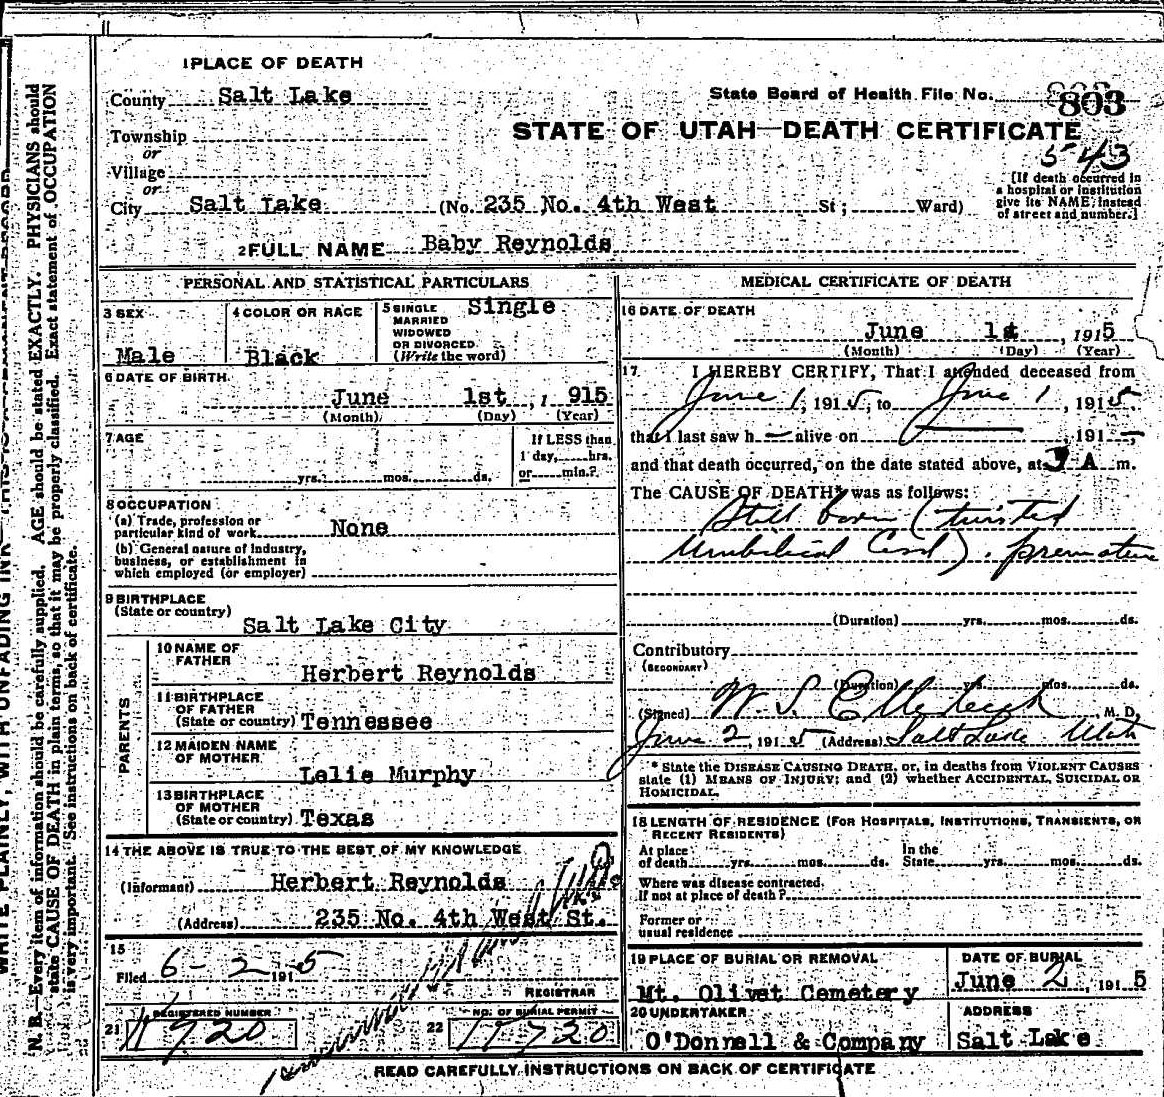 1 PLACE OF DEATH
County Salt Lake
State Board of Health File No. 803
STATE OF UTAH—DEATH CERTIFICATE
543
Township
or
Village
or
City Salt Lake (No. 235 No. 4th West St; Ward)
[If death occurred in
a hospital or institution
give its NAME, instead
of street and number.]
2 FULL NAME Baby Reynolds
PERSONAL AND STATISTICAL PARTICULARS
3 SEX
Male
4 COLOR OR RACE
Black
5 SINGLE
MARRIED
WIDOWED
OR DIVORCED
(Write the word)
Single
6 DATE OF BIRTH
June 1st, 1 915
(Month) (Day) (Year)
7 AGE
yrs. mos. ds.
If LESS than
1 day, hrs.
or min.?
8 OCCUPATION
(a) Trade, profession or
particular kind of work None
(b) General nature of industry,
business, or establishment in
which employed (or employer)
9 BIRTHPLACE
(State or country)
Salt Lake City
PARENTS
10 NAME OF
FATHER
Herbert Reynolds
11 BIRTHPLACE
OF FATHER
(State or country) Tennessee
12 MAIDEN NAME
OF MOTHER
Lelie Murphy
13 BIRTHPLACE
OF MOTHER
(State or country) Texas
14 THE ABOVE IS TRUE TO THE BEST OF MY KNOWLEDGE
(Informant) Herbert Reynolds
(Address) 235 No. 4th West St.
15
Filed 6-2 1915
REGISTRAR
REGISTERED NUMBER
21
NO. OF BURIAL PERMIT
22
MEDICAL CERTIFICATE OF DEATH
16 DATE OF DEATH
June 1st, 1915
(Month) (Day) (Year)
17 I HEREBY CERTIFY, That I attended deceased from
June 1, 1915, to June 1, 1915.
that I last saw h — alive on — , 191 —,
and that death occurred, on the date stated above, at A m.
The CAUSE OF DEATH* was as follows:
Still born (twisted
Umbilical Cord). premature
(Duration) yrs. mos. ds.
Contributory
(SECONDARY)
(Duration) yrs. mos. ds.
(Signed) W. S. M. D.
June 2, 1915 (Address) Salt Lake Utah
* State the DISEASE CAUSING DEATH, or, in deaths from VIOLENT CAUSES
state (1) MEANS OF INJURY; and (2) whether ACCIDENTAL, SUICIDAL OR
HOMICIDAL.
18 LENGTH OF RESIDENCE (FOR HOSPITALS, INSTITUTIONS, TRANSIENTS, OR
RECENT RESIDENTS)
At place
of death yrs. mos. ds. In the
State yrs. mos. ds.
Where was disease contracted,
if not at place of death?
Former or
usual residence
19 PLACE OF BURIAL OR REMOVAL
Mt. Olivet Cemetery
DATE OF BURIAL
June 2, 1915
20 UNDERTAKER
O'Donnell & Company
ADDRESS
Salt Lake
READ CAREFULLY INSTRUCTIONS ON BACK OF CERTIFICATE
WRITE PLAINLY, WITH UNFADING INK
N. B.—Every item of information should be carefully supplied. AGE should be stated EXACTLY. PHYSICIANS should
state CAUSE OF DEATH in plain terms, so that it may be properly classified. Exact statement of OCCUPATION
is very important. See instructions on back of certificate.